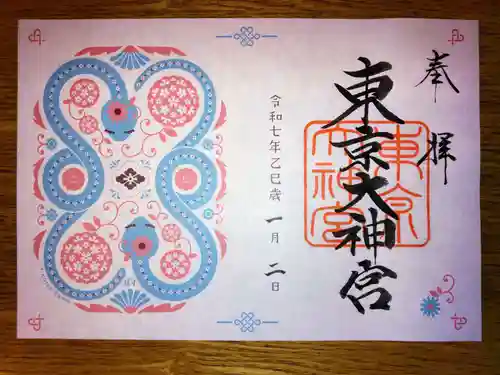 奉拝
東京大神宮
東京大神宮
令和七年乙巳歳 一月 二日